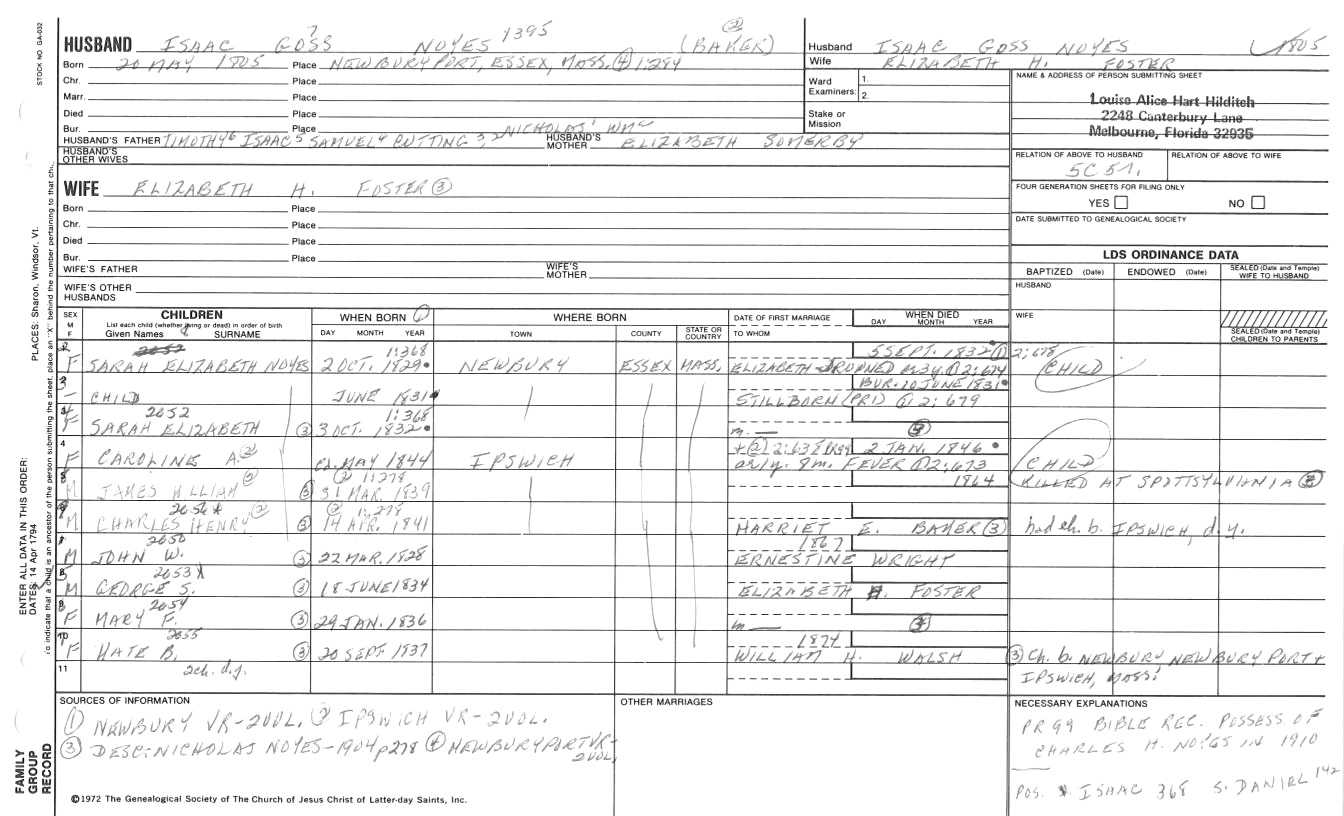 STOCK NO. GA-032
HUSBAND ISAAC GOSS 7 NOYES 1395 (BAKER) ②
Born 20 MAY 1805 Place NEWBURYPORT, ESSEX, MASS. ④ 1:284
Chr. Place
Marr. Place
Died Place
Bur. Place
HUSBAND'S FATHER TIMOTHY6 ISAAC5 SAMUEL4 CUTTING3 2NICHOLAS' WM
HUSBAND'S MOTHER ELIZABETH SOMERBY
HUSBAND'S OTHER WIVES
Husband ISAAC GOSS NOYES 1805
Wife ELIZABETH H. FOSTER
Ward Examiners: 1.
2.
Stake or Mission
NAME & ADDRESS OF PERSON SUBMITTING SHEET
Louise Alice Hart Hilditch
2248 Canterbury Lane
Melbourne, Florida 32935
RELATION OF ABOVE TO HUSBAND RELATION OF ABOVE TO WIFE
FOUR GENERATION SHEETS FOR FILING ONLY
YES NO
DATE SUBMITTED TO GENEALOGICAL SOCIETY
WIFE ELIZABETH H. FOSTER ③
Born Place
Chr. Place
Died Place
Bur. Place
WIFE'S FATHER WIFE'S MOTHER
WIFE'S OTHER HUSBANDS
LDS ORDINANCE DATA
BAPTIZED (Date) ENDOWED (Date) SEALED (Date and Temple) WIFE TO HUSBAND
HUSBAND
WIFE
SEALED (Date and Temple) CHILDREN TO PARENTS
SEX M F
CHILDREN
List each child (whether living or dead) in order of birth
Given Names SURNAME
WHEN BORN ①
DAY MONTH YEAR
WHERE BORN
TOWN COUNTY STATE OR COUNTRY
DATE OF FIRST MARRIAGE
TO WHOM
WHEN DIED
DAY MONTH YEAR
2052 1:368 5 SEPT. 1832 ① 2:678
F SARAH ELIZABETH NOYES 2 OCT. 1829 NEWBURY ESSEX MASS. ELIZABETH - DROPNED 3y. ① 2:674 CHILD
3 BUR. 10 JUNE 1831
- CHILD JUNE 1831 STILLBORN (PR1) ① 2:679
2052 1:368
F SARAH ELIZABETH ③ 3 OCT. 1832 m. —
4 ② 2:638 2 JAN. 1846
F CAROLINE A. ② ca. MAY 1844 IPSWICH 1y. 8m. FEVER ② 2:673 CHILD
② 1:278 1864 KILLED AT SPOTTSYLVIANIA
M JAMES WILLIAM ② ③ 31 MAR. 1839
2056 * ② 1:278
M CHARLES HENRY ② ③ 14 APR. 1841 HARRIET E. BAKER ③ had ch. b. IPSWICH, d.y.
2050 1867
M JOHN W. ③ 22 MAR. 1828 ERNESTINE WRIGHT
2053 X
M GEORGE S. ③ 18 JUNE 1834 ELIZABETH H. FOSTER
2054
F MARY F. ③ 29 JAN. 1836 m —
10 2055 1874
F KATE B. ③ 20 SEPT 1837 WILLIAM H. WALSH ③ Ch. b. NEWBURY, NEWBURYPORT +
IPSWICH, MASS.
11 2ch. d.y.
SOURCES OF INFORMATION
① NEWBURY VR-2VOL. ② IPSWICH VR-2VOL.
③ DESC: NICHOLAS NOYES-1904 p278 ④ NEWBURYPORT VR-
2VOL.
OTHER MARRIAGES
NECESSARY EXPLANATIONS
PR99 BIBLE REC. POSSESS OF
CHARLES H. NOYES IN 1910
POS. * ISAAC 368 S. DANIEL 142
©1972 The Genealogical Society of The Church of Jesus Christ of Latter-day Saints, Inc.
FAMILY GROUP RECORD
ENTER ALL DATA IN THIS ORDER:
DATES: 14 Apr 1794
PLACES: Sharon, Windsor, Vt.
To indicate that a child is an ancestor of the person submitting the sheet, place an "X" behind the number pertaining to that chi